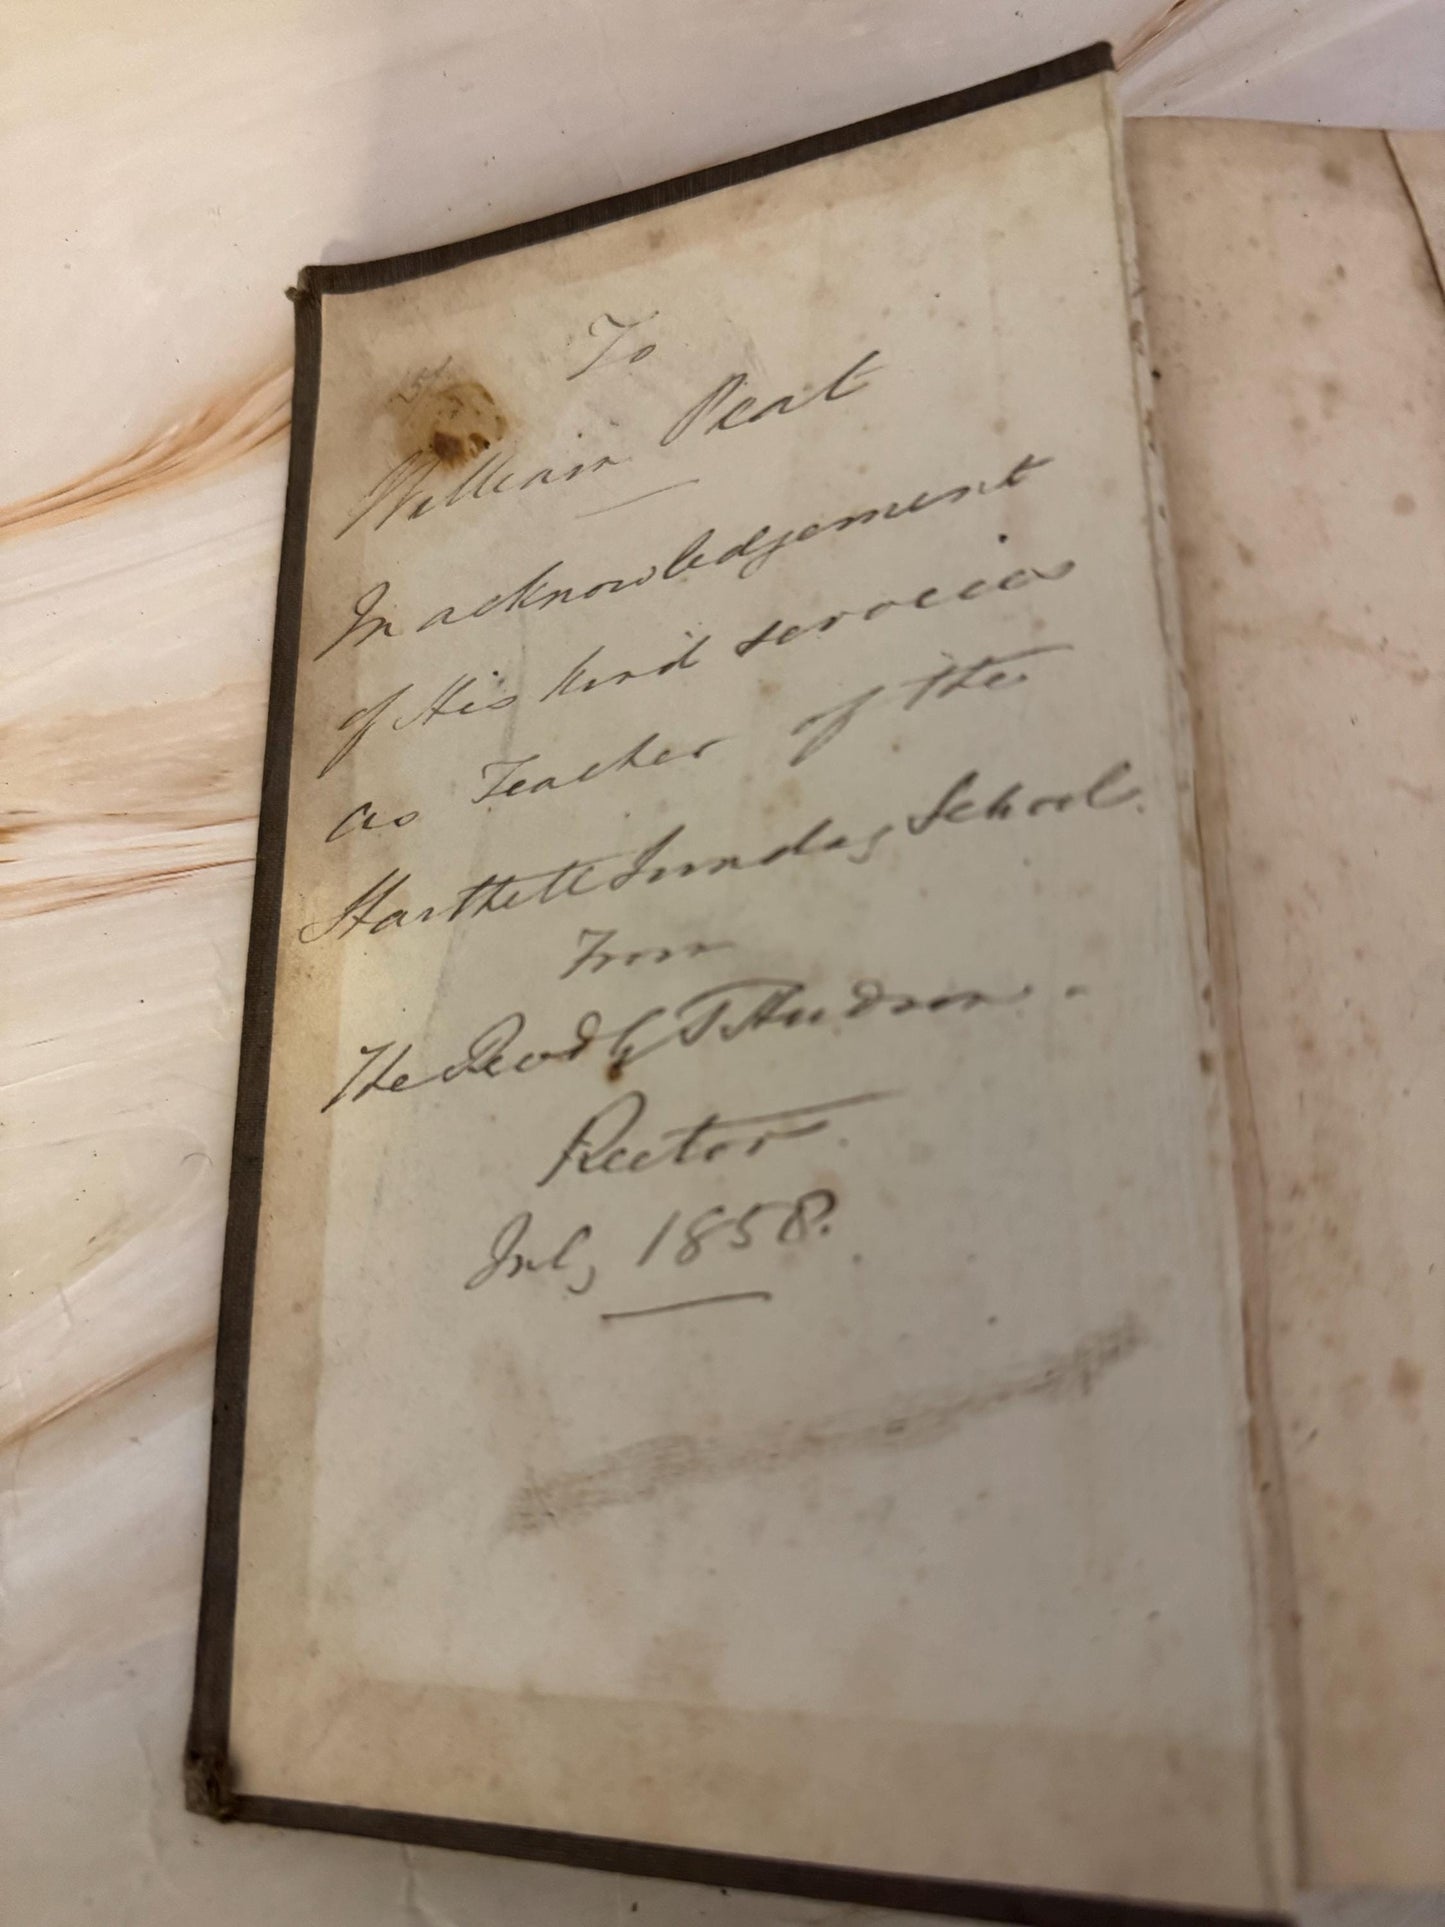 To
William Peat
In acknowledgement
of His kind services
as Teacher of the
Harthill Sunday School.
From
The Revd G T Hudson.
Rector.
July 1858.